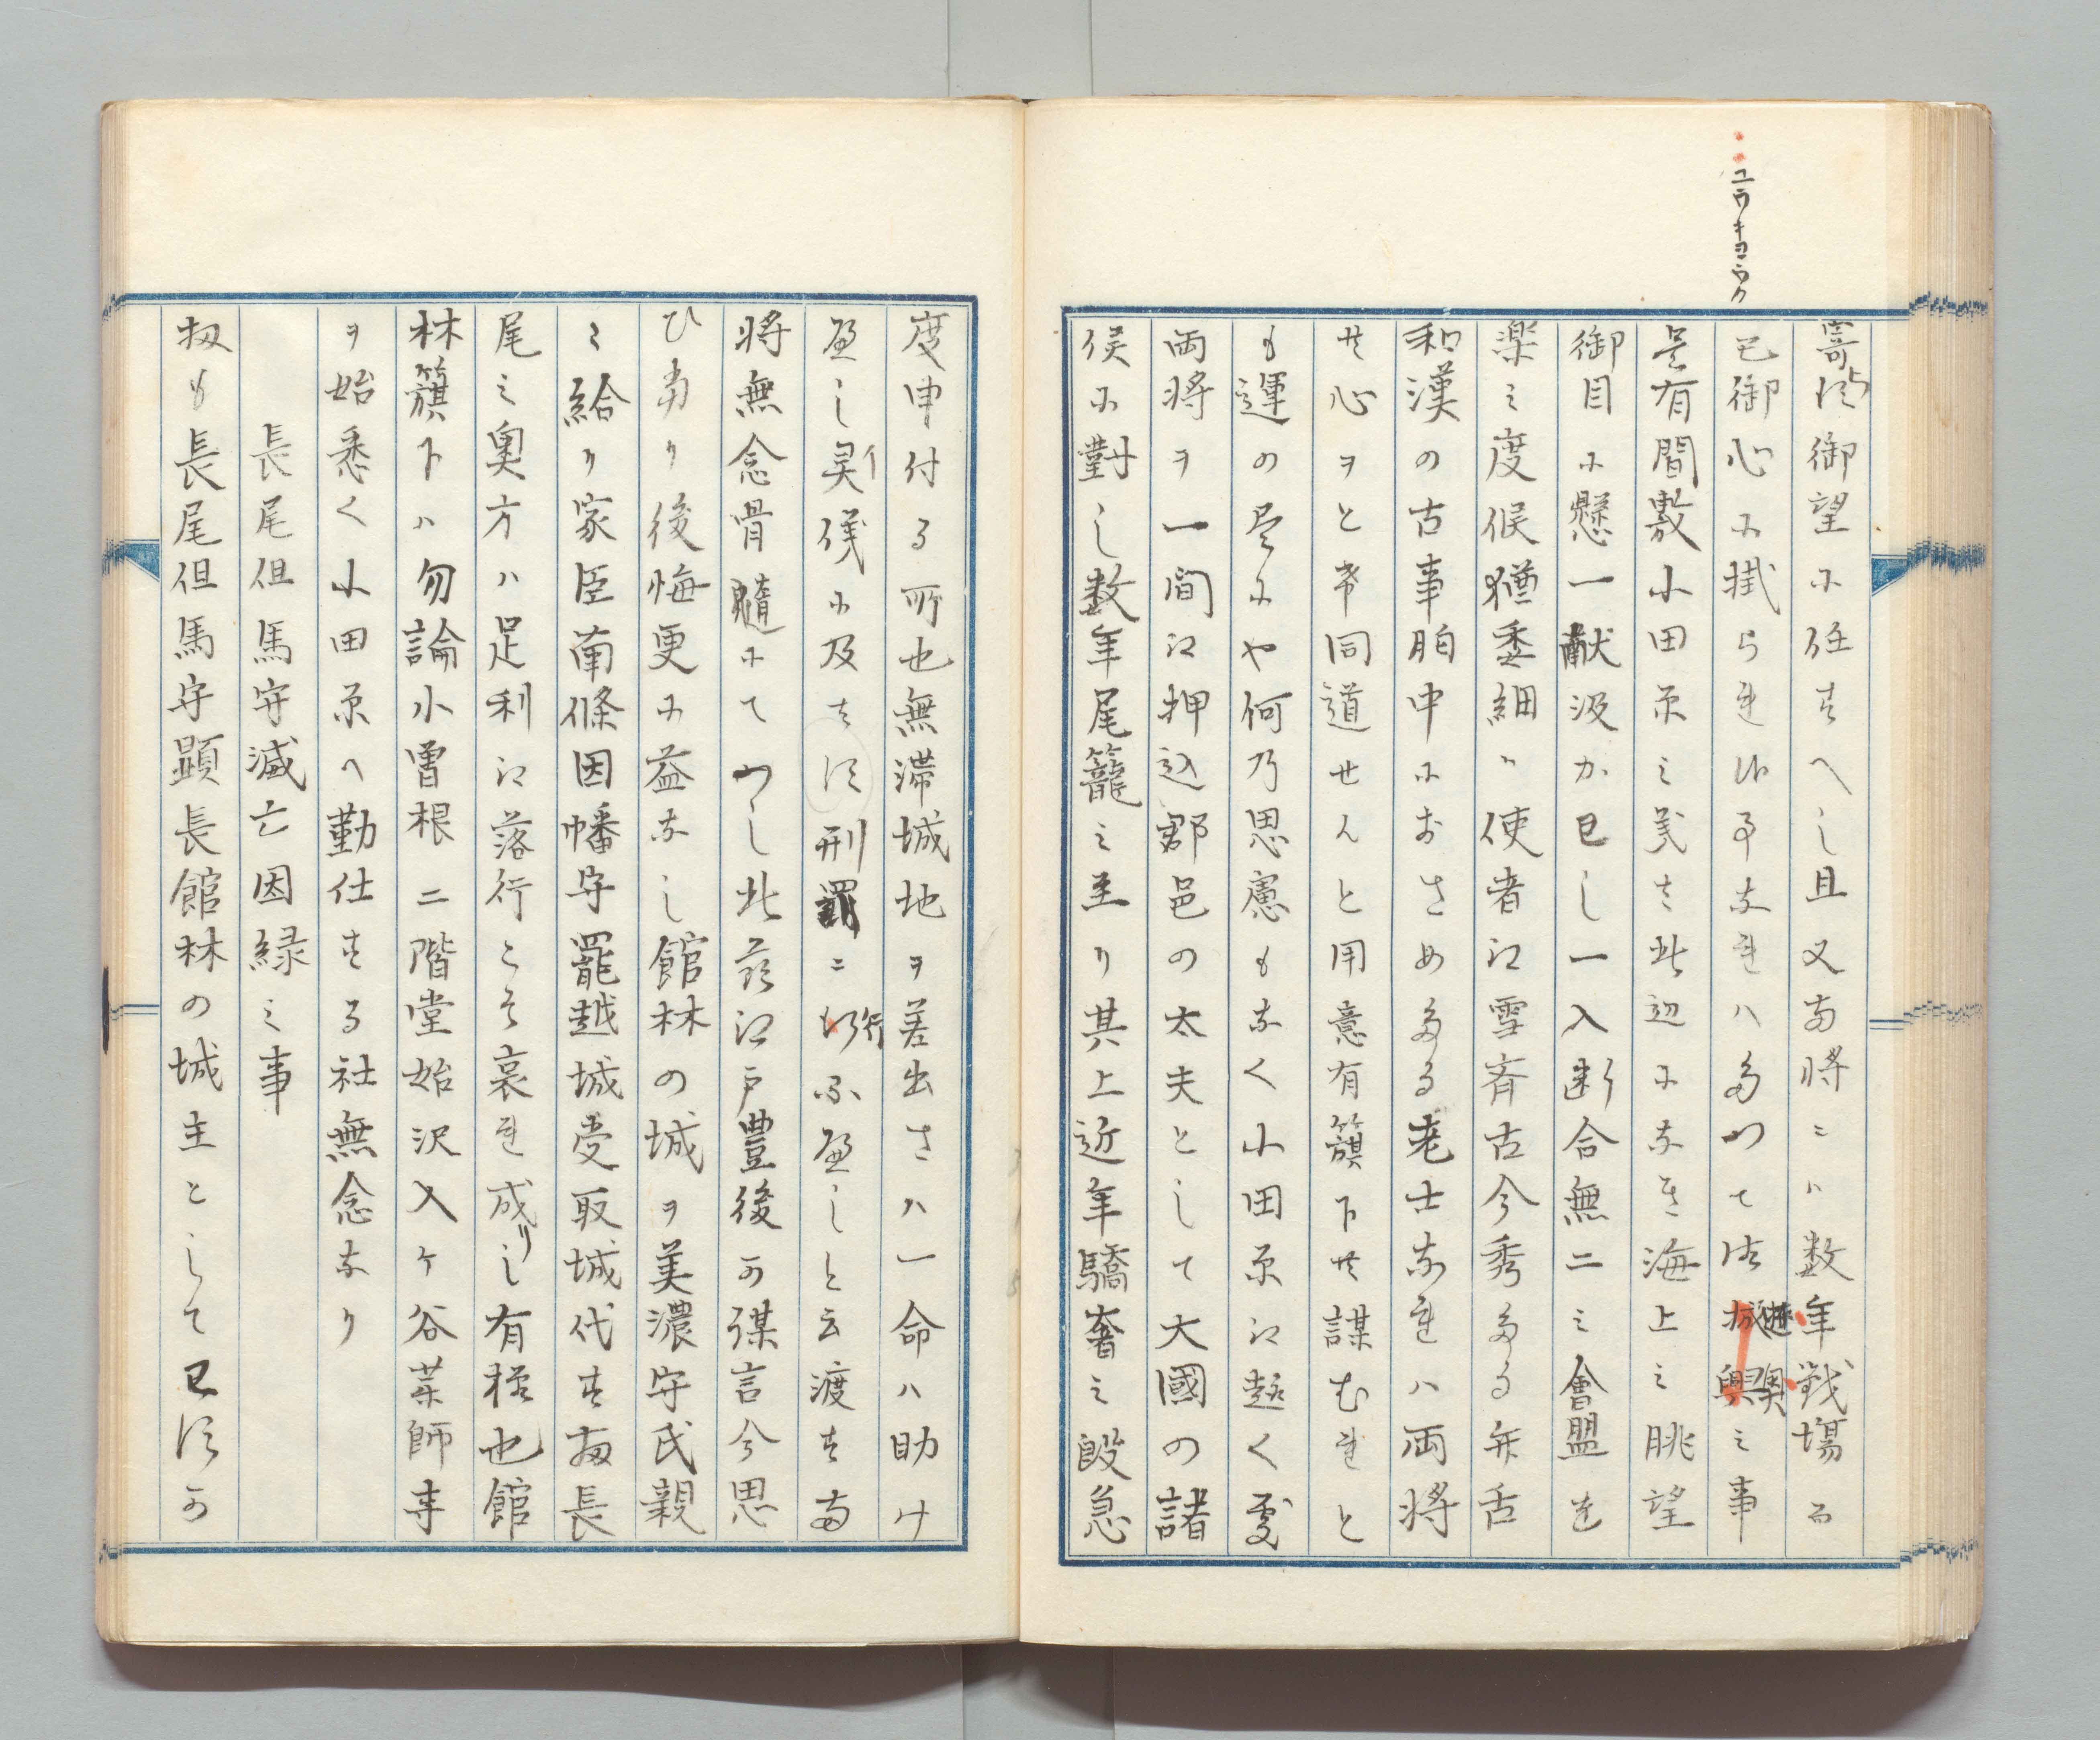 ユウキヨウカ
寄候御望に任すへし且又両将ニハ数年戦場而
已御心に掛られ候事なれハたつて御遊興之事
是有間敷小田原之義は此辺になき海上之眺望
御目に懸一献汲かわし一入断合無二之會盟を
楽之度候猶委細ハ使者江雪斉古今秀たる弁舌
和漢の古事胸中におさめたる老士なれハ両将
其心ヲと希同道せんと用意有籏下其謀むれと
も運の尽にや何乃思慮もなく小田原江越く處
両将ヲ一間江押込郡邑の太夫として大國の諸
侯に對し数年尾籠之至り其上近年驕奢之段急
度申付る所也無滞城地ヲ差出さハ一命ハ助け
へし異儀に及は候刑罰ニ行ふへしと云渡す両
将無念骨髄にてつし北茲江戸豊後の謀言今思
ひ當り後悔更に益なし館林の城ヲ美濃守氏親
ニ給り家臣南條因幡守罷越城受取城代す扨長
尾之奥方ハ足利江落行こそ哀れ成りし有様也館
林籏下ハ勿論小曽根二階堂始沢入ヶ谷茶師寺
ヲ始悉く小田原へ勤仕する社無念なり
長尾但馬守滅亡因縁之事
扨も長尾但馬守顕長館林の城主としてわ候の